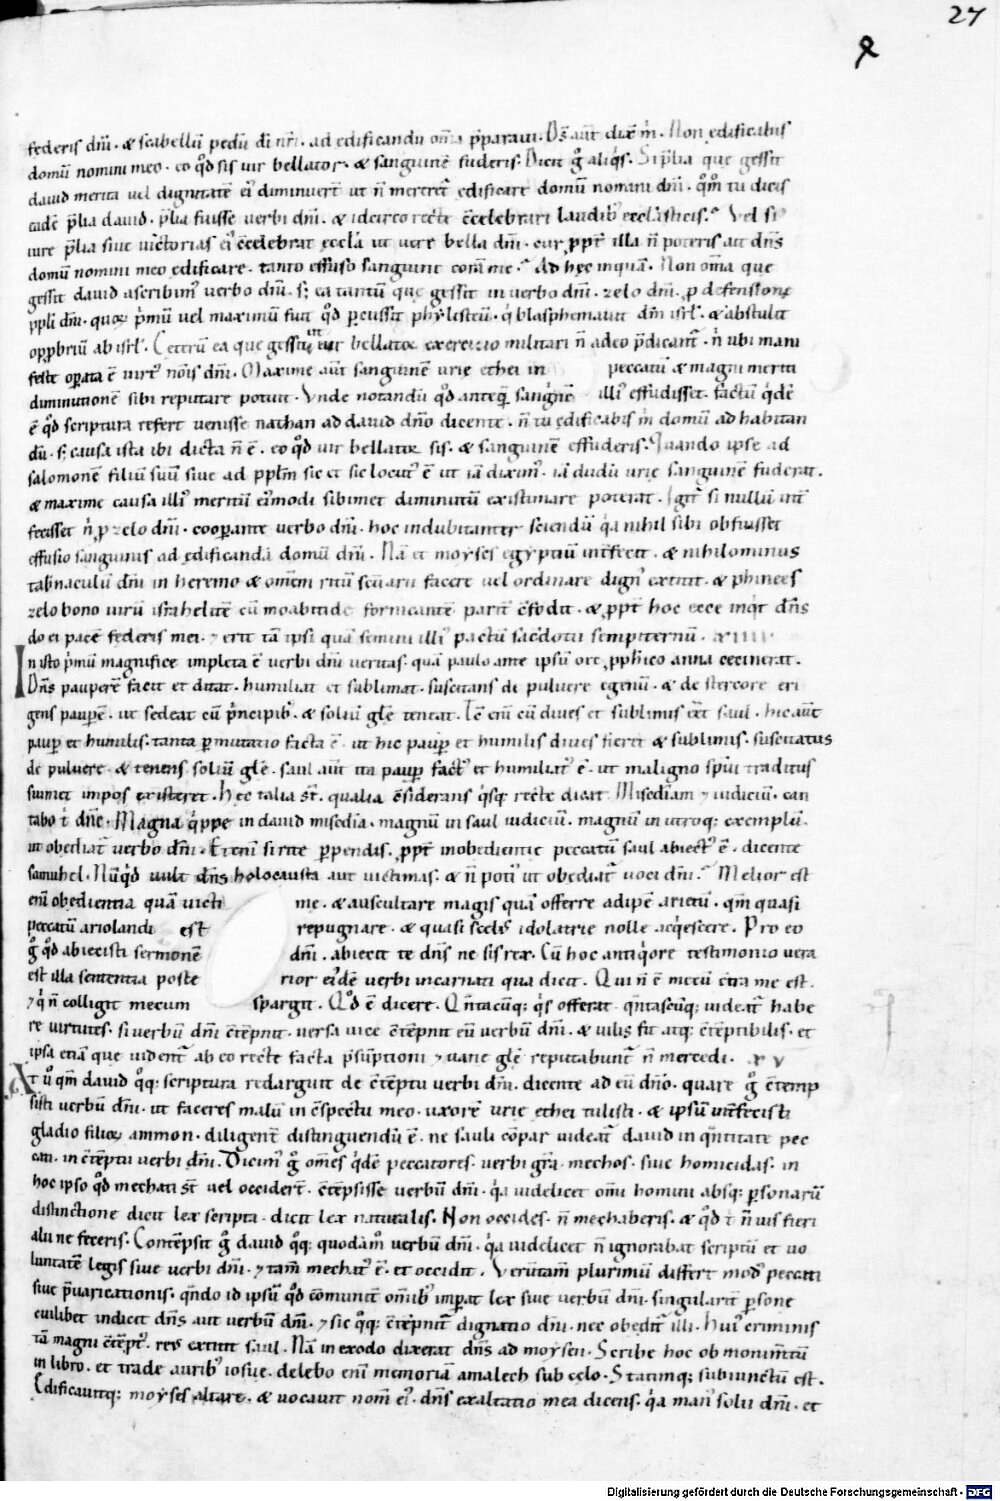 27
federis dnī. & scabellū pedū dī nr̄i. ad edificandū om̄a p̄paraui. D̄s aūt dix̄ m̄. Non ędificabis
domū nomini meo. eo qd̄ sis uir bellator. & sanguinē fuderis. Dicit g̊ aliq̇s. Si p̄lia que gessit
dauid merita uel dignitatē ei᾽ diminuerēt ut n̄ mereret᾽ ędificare domū nomini dnī. qm̊ tu dicis
eadē p̄lia dauid. p̄lia fuisse uerbi dnī. & idcirco recte c̄celebrari laudib᾽ ecclasticis. Vel si
iure p̄lia siue uictorias ei᾽ c̄celebrat ęccla ut uere bella dnī. cur ppt̄ illa n̄ poteris ait dn̄s
domū nomini meo ędificare. tanto effuso sanguine corā me. Ad hęc inquā. Non om̄a que
gessit dauid ascribim᾽ uerbo dnī. s; ea tantū quę gessit in uerbo dnī. zelo dnī. p defensione
ppli dnī. quoꝝ p̄mū uel maximū fuit qd̄ pcussit phylisteū. q̇ blasphemauit dnī isrl. & abstulit
opp̱briū ab isrl. Cetterū ea que gessit ut uir bellator exercizio militari n̄ adeo p̄dicant᾽. n̄ ubi mani
feste opata ē uirt᾽ nōis dnī. Maxime aūt sanguinē urie ethei in peccatū & magni meriti
diminutionē sibi reputare potuit. Vnde notandū qd̄ anteq̄ sanguinē illi᾽ effudisset. factū q̇dē
ē qd̄ scriptura refert uenisse nathan ad dauid dnō dicente. n̄ tu ędificabis m̄ domū ad habitan
dū. s; causa ista ibi dicta n̄ ē. eo qd̄ uir bellator sis. & sanguinē effuderis. Quando ipse ad
salomonē filiū suū siue ad pplm sic et sic locut᾽ ē ut iā dixim᾽. iā dudū urię sanguinē fuderat.
& maxime causa illi᾽ meritū ei᾽modi sibimet diminutū existimare poterat. Igit᾽ si nullū int̄
fecisset n̄ p zelo dnī. coopante uerbo dnī. hoc indubitanter sciendū q̇a nihil sibi obfuisset
effusio sanguinis ad ędificandā domū dnī. Nā et moyses egyptiū int̄fecit. & nihilominus
tabnaculū dnī in heremo & omēm ritū sc̄uarii facere uel ordinare dign᾽ extitit. & phinees
zelo bono uirū israhelitē cū moabitide fornicantē parit c̄fodit. & ppt̄ hoc ecce inq̇t dn̄s
do ei pacē fęderis mei. ⁊ erit tā ipsi quā semini illi᾽ pactū sac̄dotii sempiternū. XIIII
In isto p̄mū magnifice impleta ē uerbi dnī ueritas. quā paulo ante ipsū ore pphico anna cecinerat.
Dn̄s pauperē facit et ditat. humiliat et sublimat. suscitans de puluere egenū. & de stercore eri
gens paupē. ut sedeat cū p̄ncipib᾽. & soliū glę teneat. Tē eni cū diues et sublimis eēt saul. hic aūt
paup et humilis. tanta pmutatio facta ē. ut hic paup et humilis diues fieret & sublimis. suscitatus
de puluere. & tenens soliū glę. saul aūt ita paup fact᾽ et humiliat᾽ ē. ut maligno spūi traditus
suimet impos existeret. Hęc talia st̄. qualia c̄siderans q̇sq; recte dicat. Misediam ⁊ iudiciū. can
tabo t̄ dn̄e. Magna q̇ppe in dauid misedia. magnū in saul iudiciū. magnū in utroq; exemplū.
ut obediat᾽ uerbo dnī. Et enī si rite ppendis. ppt̄ inobedientie peccatū saul abiect᾽ ē. dicente
samuhel. Nūqd̄ uult dn̄s holocausta aut uictimas. & n̄ poti᾽ ut obediat᾽ uoci dnī. Melior est
enī obedientia quā uicti me. & auscultare magis quā offerre adipē arietū. qm̄ quasi
peccatū ariolandi est repugnare. & quasi scelus idolatrie nolle acq̇escere. Pro eo
g̊ qd̄ abiecisti sermonē dnī. abiecit te dn̄s ne sis rex. Cū hoc antiq̇ore testimonio uera
est illa sententia poste rior ei᾽dē uerbi incarnati qua dicit. Qui n̄ ē mecū c̄tra me est.
⁊ q̇ n̄ colligit mecum spargit. Qd̄ ē dicere. Qn̄tacūq; q̇s offerat. qn̄tascūq; uideat᾽ habe
re uirtutes. si uerbū dnī c̄tēpnit. uersa uice c̄tēpnit eū uerbū dnī. & uilis fit atq; c̄tēptibilis. et
ipsa etiā que uident᾽ ab eo recte facta p̄sūptioni ⁊ uane glę reputabunt᾽ n̄ mercedi. XV
At u̇ qm̄ dauid qq; scriptura redarguit de c̄tēptu uerbi dnī. dicente ad eū dnō. quare g̊ c̄temp
sisti uerbū dnī. ut faceres malū in c̄spectu meo. uxorē urie ethei tulisti. & ipsū int̄fecisti
gladio filioꝝ ammon. diligent̄ distinguendū ē. ne sauli c̄opar uideat᾽ dauid in qn̄titate pec
cati. in c̄tēptu uerbi dnī. Dicim᾽ g̊ om̄es q̇dē peccatores. uerbi gr̄a. mechos. siue homicidas. in
hoc ipso qd̄ mechati st̄ uel occidert̄. c̄tēpsisse uerbū dnī. q̇a uidelicet omī homini absq; psonarū
distinctione dicit lex scripta. dicit lex naturalis. Non occides. n̄ mechaberis. & qd̄ t̄ n̄ uis fieri
alii ne feceris. Contēpsit g̊ dauid qq; quodām᾽ uerbū dnī. q̇a uidelicet n̄ ignorabat scriptū et uo
luntatē legis siue uerbi dnī. ⁊ tam̄ mechat᾽ ē. et occidit. Verūtam̄ plurimū differt mod᾽ peccati
siue p̄uaricationis. qn̄do id ipsū qd̄ c̄omunit̄ om̄ib᾽ impat lex siue uerbū dnī. singularit̄ psone
cuilibet indicit dn̄s aut uerbū dnī. ⁊ sic qq; c̄tēpnit᾽ dignatio dnī. nec obędit᾽ illi. Hui᾽ criminis
tā magni c̄tēpt᾽. reus extitit saul. Nā in exodo dixerat dn̄s ad moysen. Scribe hoc ob monim̄tū
in libro. et trade aurib᾽ iosue. delebo enī memoriā amalech sub cęlo. Statimq; subiunctū est.
Ędificauitq; moyses altare. & uocauit nom̄ ei᾽. dn̄s exaltatio mea dicens. q̇a man᾽ solii dnī. et
Digitalisierung gefördert durch die Deutsche Forschungsgemeinschaft - DFG